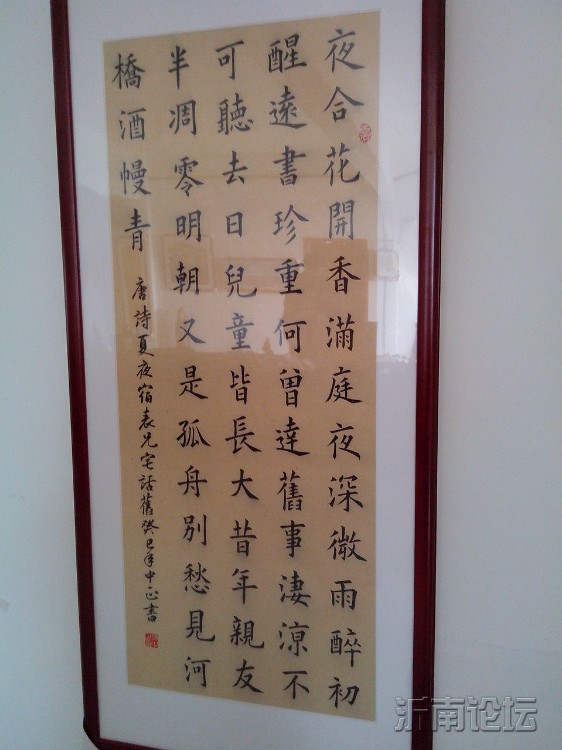 夜合花開香滿庭夜深微雨醉初
醒遠書珍重何曾達舊事淒涼不
可聽去日兒童皆長大昔年親友
半凋零明朝又是孤舟別愁見河
橋酒幔青
唐詩夏夜宿表兄宅話舊癸巳年中正書
沂南论坛